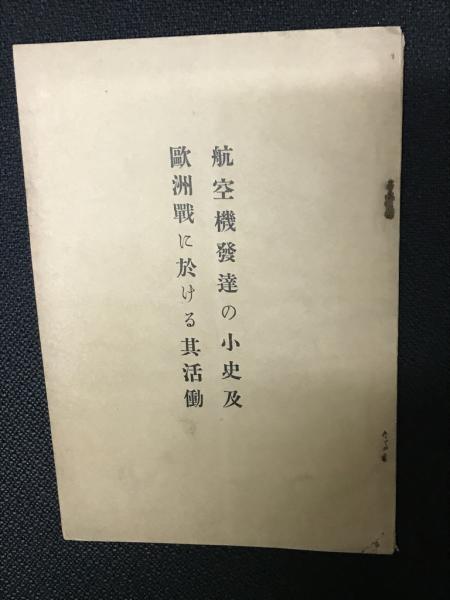 航空機發達の小史及
歐洲戰に於ける其活働